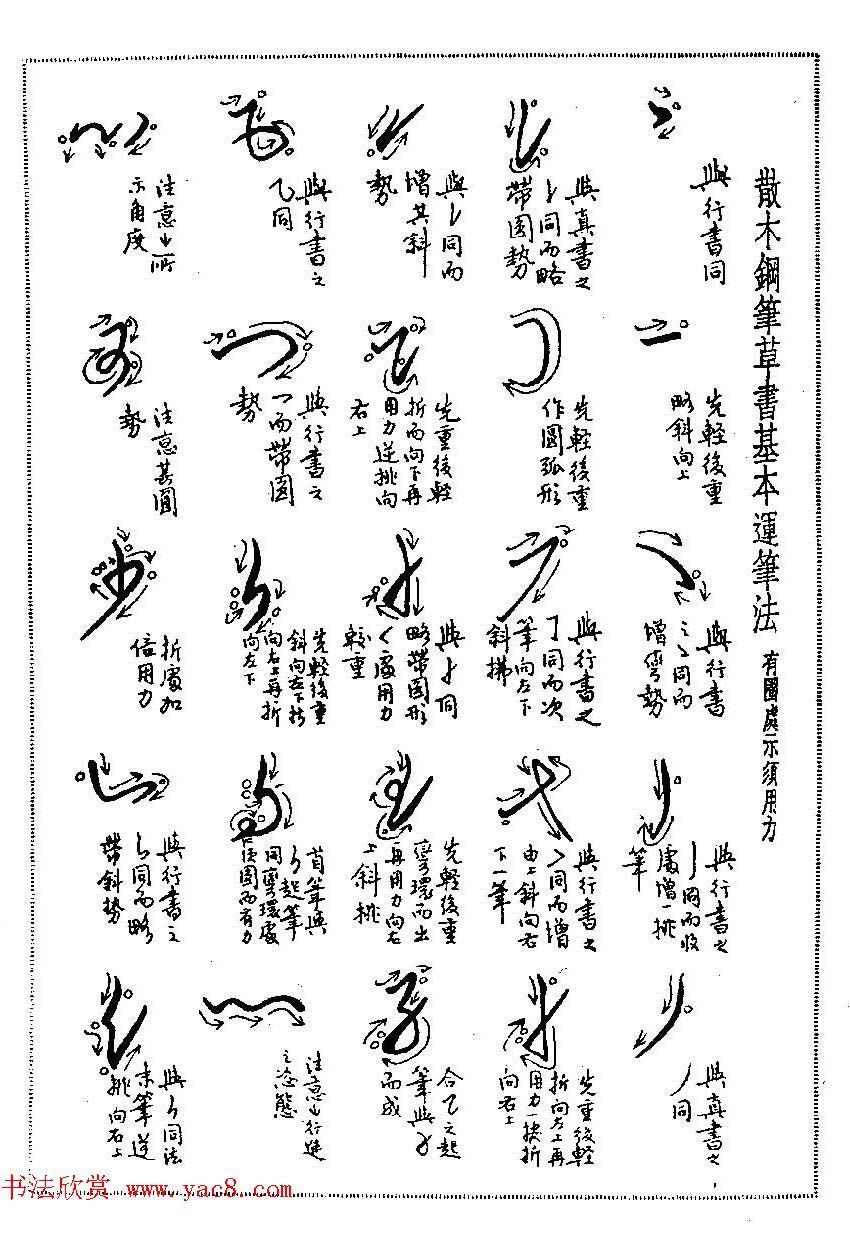 散木鋼筆草書基本運筆法 有圈處示須用力
與行書同
先輕後重
略斜向上
與行書
之㇏同而
增彎勢
與行書之
亅同而收
處增一挑
筆
與真書之
丿同
與真書之
同而略
帶圓勢
先輕後重
作圓弧形
與行書之
㇆同而次
筆向左下
斜拂
與行書之
同而增
由上斜向右
下一筆
先重後輕
折向左上再
用力一挫折
向右上
與同而
增其斜
勢
先重後輕
折而向下再
用力逆挑向
右上
與同
略帶圓形
處用力
較重
先輕後重
彎環而出
再用力向左
上斜挑
合乙之起
筆與
而成
與行書之
乙同
與行書之
乛而帶圓
勢
先輕後重
斜向左下折
向右上再折
向左下
首筆與
起筆
同彎環處
須圓而有力
注意出行進
之姿態
注意出所
示角度
注意其圓
勢
折處加
倍用力
與行書之
同而略
帶斜勢
與同法
末筆逆
挑向右上
书法欣赏 www.yac8.com